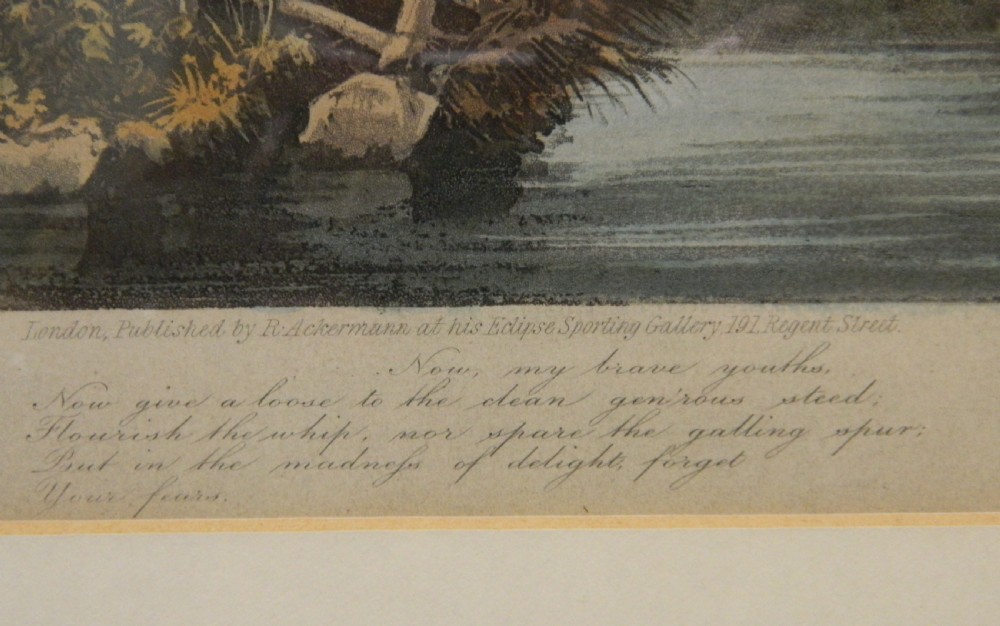 London, Published by R. Ackermann at his Eclipse Sporting Gallery, 191, Regent Street.
Now, my brave youths,
Now give a loose to the clean gen'rous steed;
Flourish the whip, nor spare the galling spur;
But in the madneſs of delight, forget
Your fears.